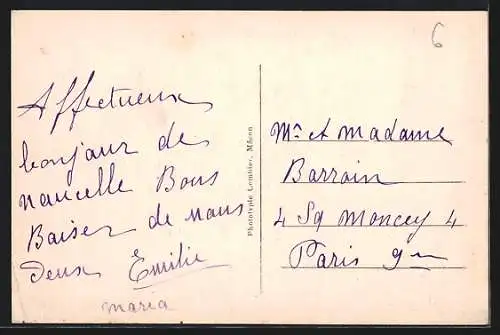 Affectueux
bonjour de
nancelle Bons
Baiser de nous
Deux Emilie
maria
Phototypie Combier, Mâcon
6
Mr et madame
Barroin
4 Sq Moncey 4
Paris 9me